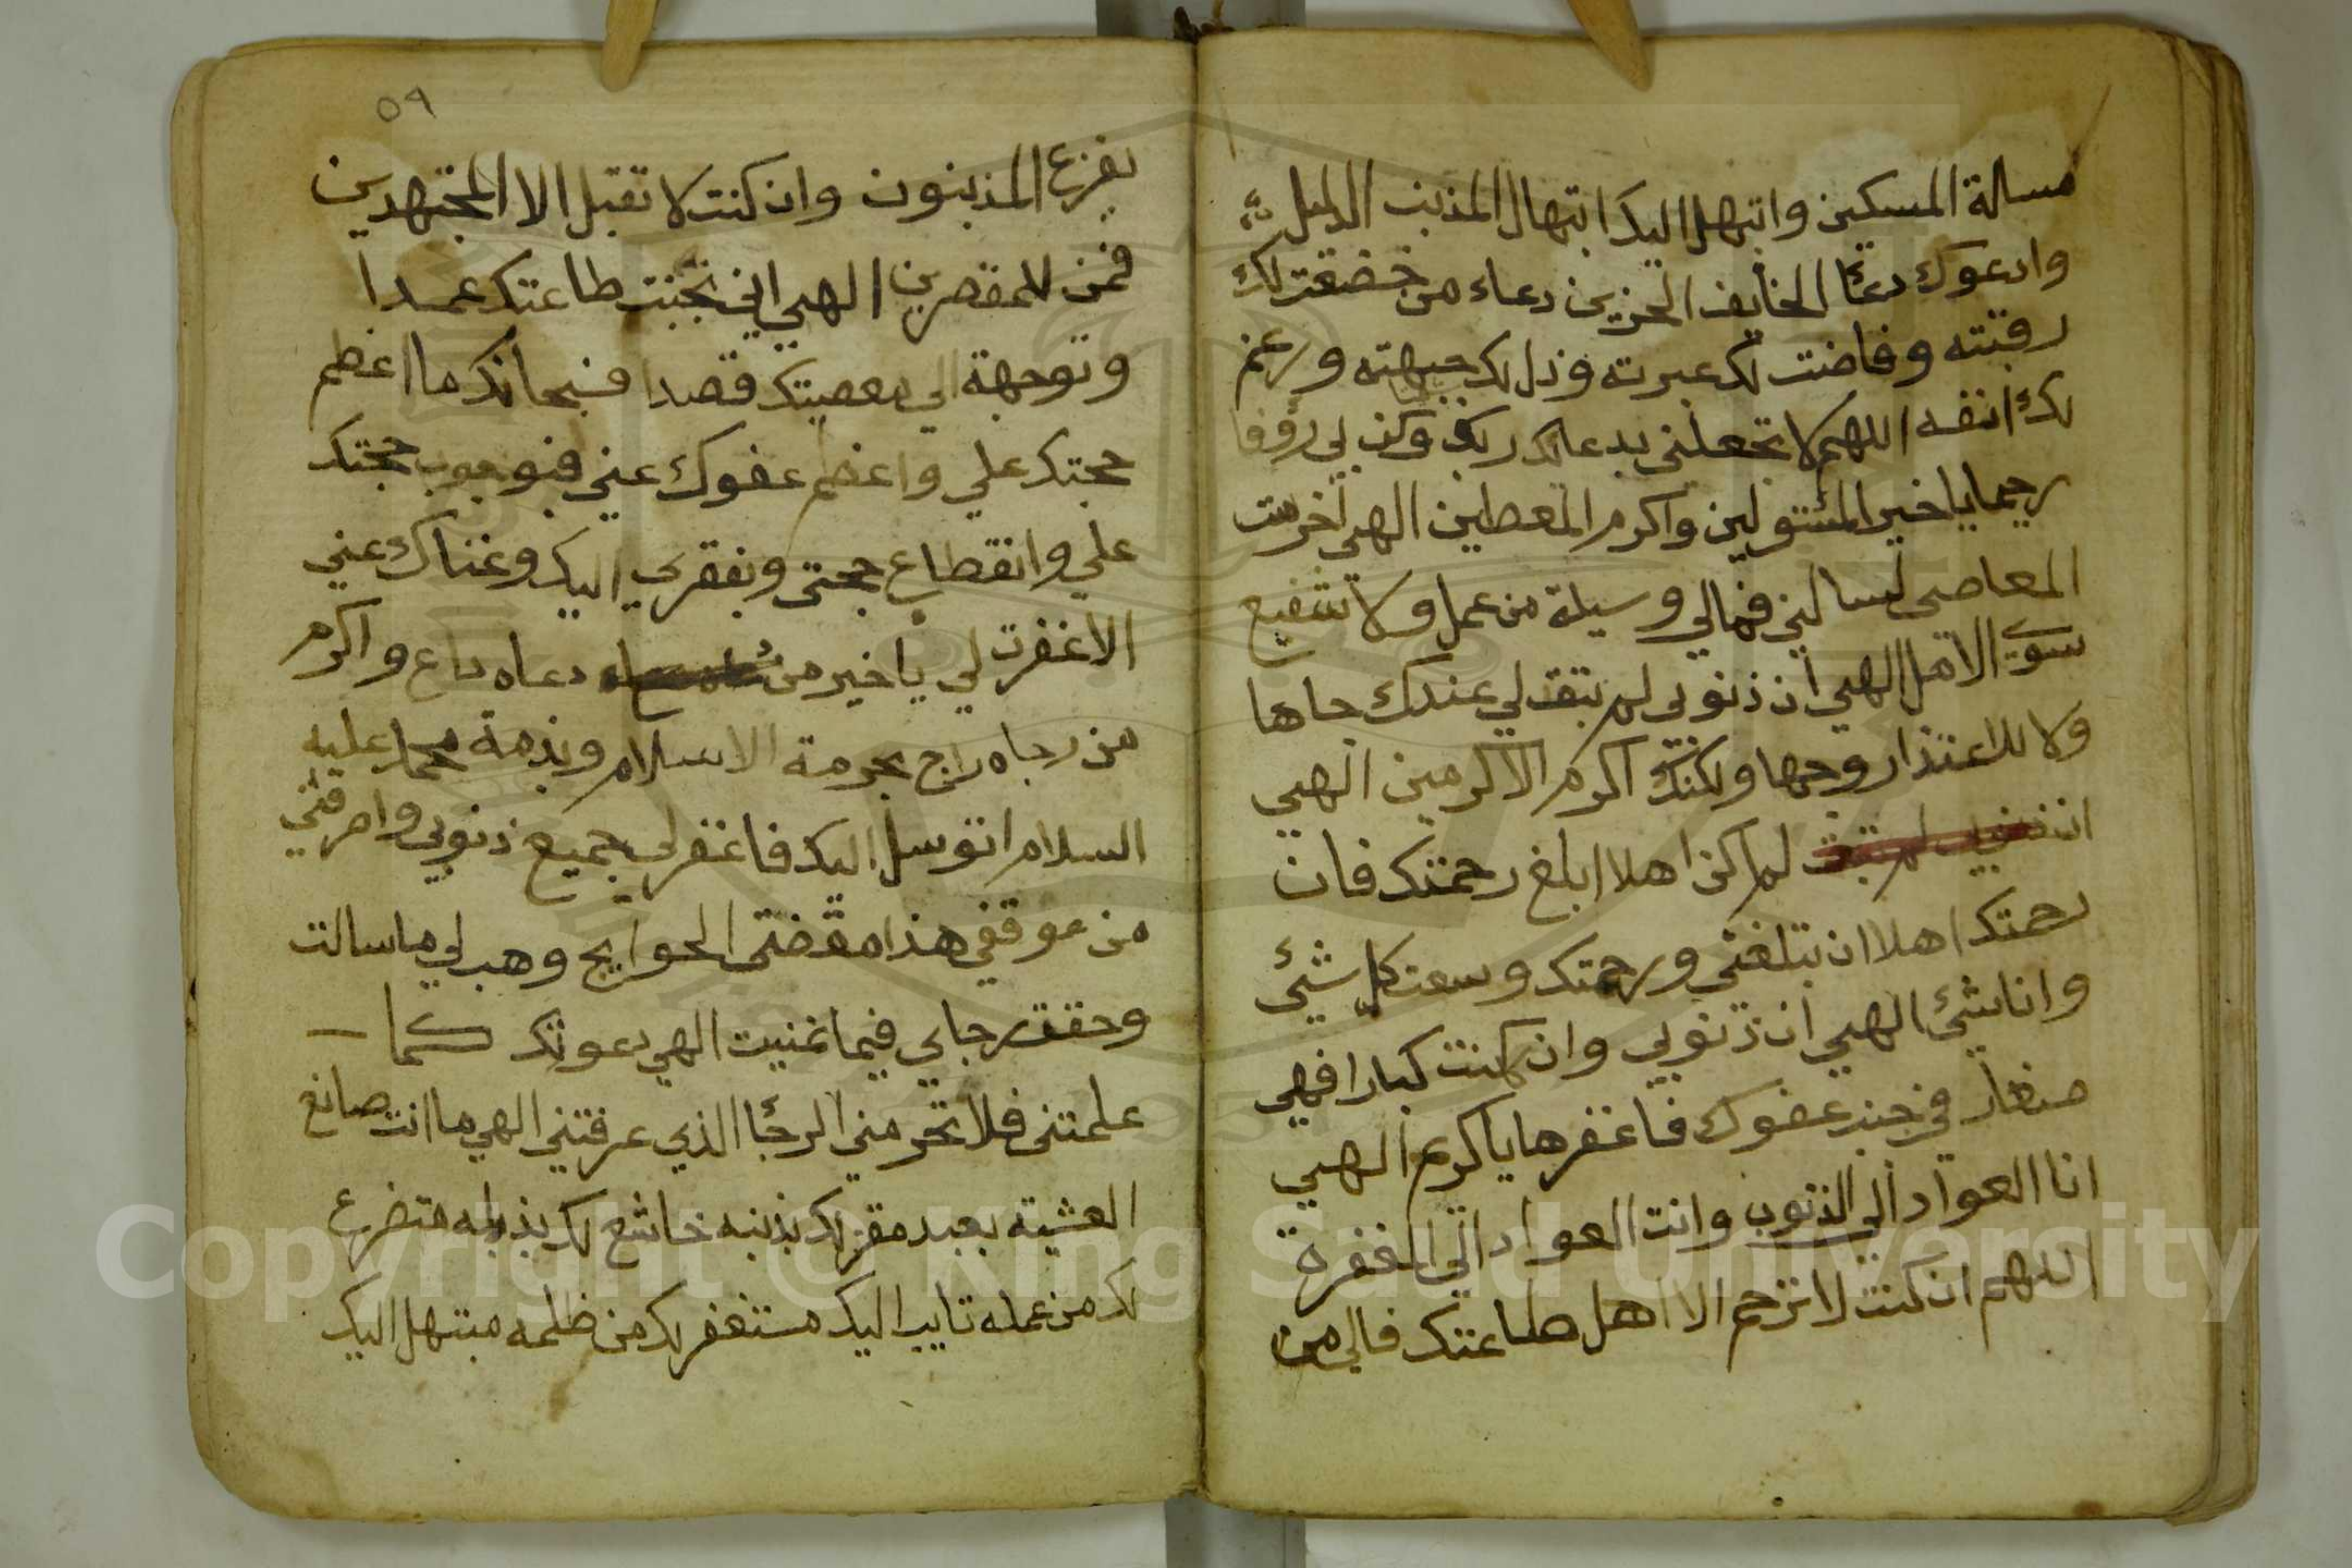 مسالة المسكين وابتهل اليك ابتهال المذنب الذليل
وادعوك دعآ الخايف الحزين دعاء من خضعت لك
رقبته وفاضت لك عبرته وذل لك جبهته ورغم
لك انفه اللهم لا تجعلني بدعائك ربك وكن لي رؤفا
رحيما ياخير المسئولين واكرم المعطين الهي اخرست
المعاصي لساني فمالي وسيلة من عمل ولا شفيع
سوى الامل الهي ان ذنوبي لم تبق لي عندك جاها
ولا للاعتذار وجها ولكنك اكرم الاكرمين الهي
ان لم اكن اهلا ابلغ رحمتك فان
رحمتك اهلا ان تبلغني ورحمتك وسعت كل شيئ
وانا شيئ الهي ان ذنوبي وان كنت كبارا فهي
صغار في جنب عفوك فاغفرها ياكرم الهي
انا العواد الي الذنوب وانت العواد الي المغفرة
اللهم ان كنت لا ترحم الا اهل طاعتك فالي من
٥٩
يفزع المذنبون وان كنت لا تقبل الا المجتهدين
فمن للمقصرين الهي اني تجنبت طاعتك عمدا
وتوجهة الي معصيتك قصدا فسبحانك ما اعظم
حجتك علي واعظم عفوك عني فبوجوب حجتك
علي وانقطاع حجتي وبفقري اليك وغناك عني
الا غفرت لي ياخير من دعاه داع واكرم
من رجاه راج بحرمة الاسلام وبذمة محمد عليه
السلام اتوسل اليك فاغفر لي جميع ذنوبي واصرفني
من موقفي هذا مقضي الحوايج وهب لي ما سالت
وحقق رجاي فيما تمنيت الهي دعوتك كما
علمتني فلا تحرمني الرجآ الذي عرفتني الهي ما انت صانع
العشية بعبد مقر لك بذنبه خاشع لك بذله متضرع
لك من عمله تايب اليك مستغفر لك من ظلمه مبتهل اليك
Copyright © King Saud University